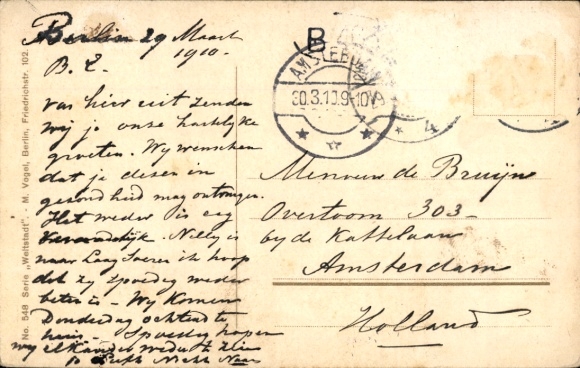 Berlin 29 Maart
1910.
B. Z.
van hier uit zenden
wij je onze hartelijke
groeten. Wij wenschen
dat je dezen in
gezondheid mag ontvangen.
Het weder is erg
Nelly is
naar Laag Soeren ik hoop
dat zij spoedig weder
beter is – Wij komen
Donderdag ochtend t
huis – Spoedig hopen
wij elkander weder te zien
No. 548 Serie „Weltstadt“ · M. Vogel, Berlin, Friedrichstr. 102.
B
AMSTERDAM
30.3.10.9-10V
Mevrouw de Bruijn
Overtoom 303–
bij de Kattelaan
Amsterdam
Holland